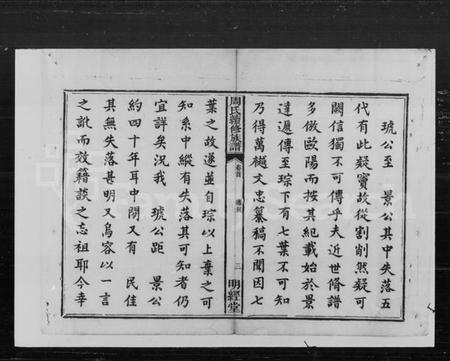 琥公至　景公其中失落五
代有此疑竇故從割削然疑可
闕信獨不可傳乎夫近世脩譜
多倣歐陽而按其紀載始於景
達遞傳至琮下有七葉不可知
乃得萬樾文忠纂稿不聞因七
周氏續修族譜
卷首
二
明經堂
葉之故遂並自琮以上棄之可
知系中縱有失落其可知者仍
宜詳矣況我　琥公距　景公
約四十年耳中閒又有　民佳
其無失落甚明又烏容以一言
之訛而效籍談之忘祖耶今幸